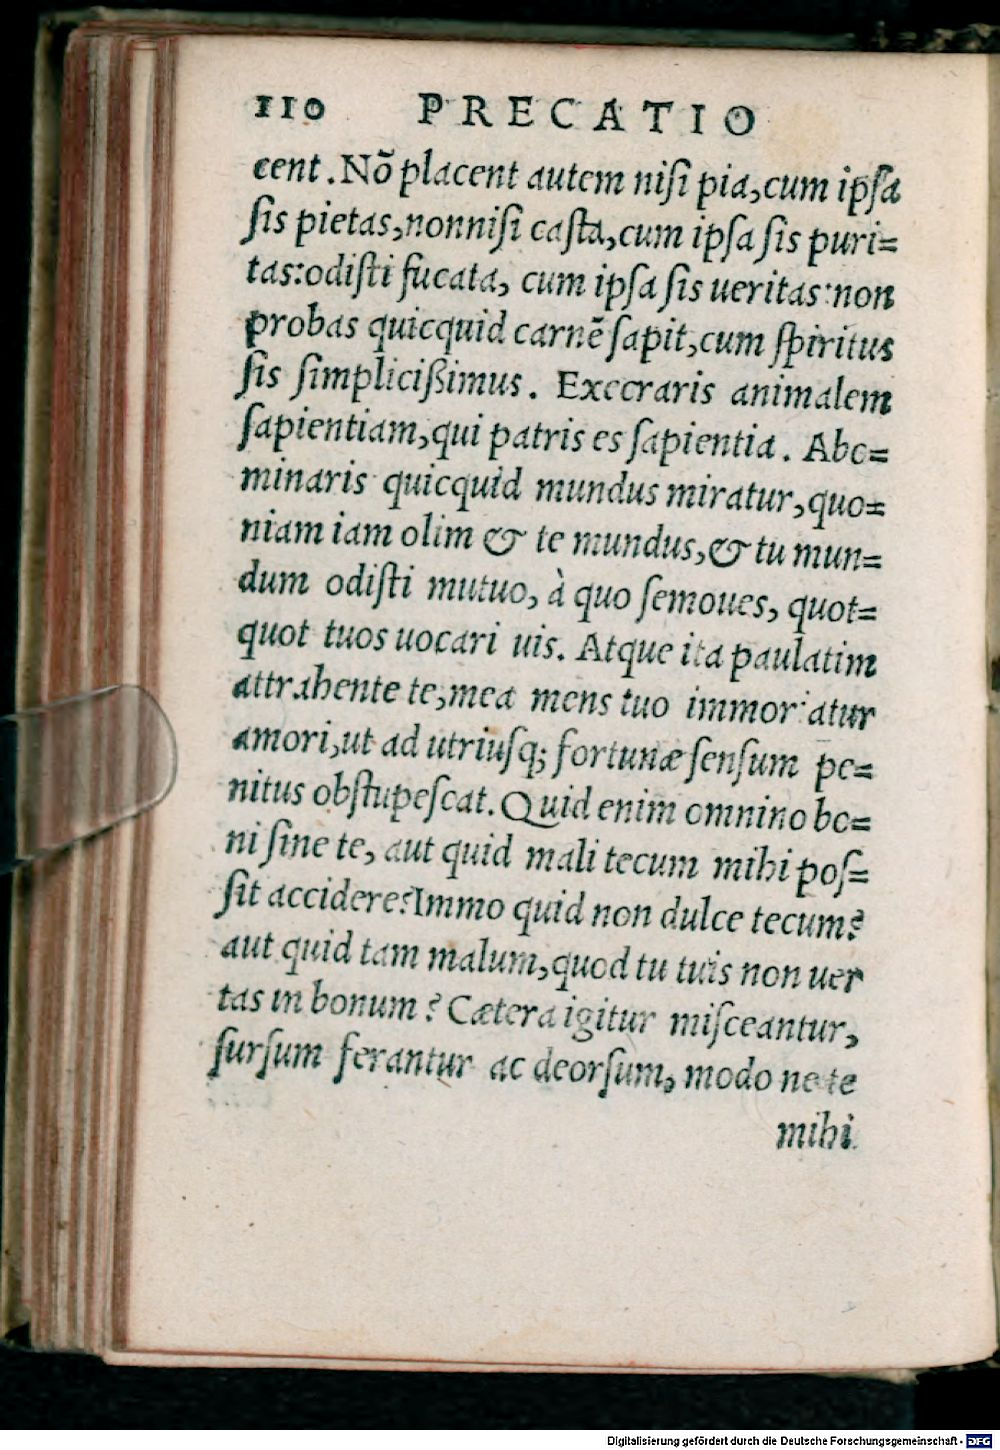 110 PRECATIO
cent. Nõ placent autem nisi pia, cum ipſa
ſis pietas, nonniſi caſta, cum ipſa ſis puri=
tas: odiſti fucata, cum ipſa ſis ueritas: non
probas quicquid carnẽ ſapit, cum ſpiritus
ſis ſimpliciſsimus. Execraris animalem
ſapientiam, qui patris es ſapientia. Abo=
minaris quicquid mundus miratur, quo=
niam iam olim & te mundus, & tu mun=
dum odiſti mutuo, à quo ſemoues, quot=
quot tuos uocari uis. Atque ita paulatim
attrahente te, mea mens tuo immoriatur
amori, ut ad utriuſq; fortunæ ſenſum pe=
nitus obſtupeſcat. Quid enim omnino bo=
ni ſine te, aut quid mali tecum mihi poſ=
ſit accidere? Immo quid non dulce tecum?
aut quid tam malum, quod tu tuis non uer
tas in bonum? Cætera igitur miſceantur,
ſurſum ferantur ac deorſum, modo ne te
mihi
Digitalisierung gefördert durch die Deutsche Forschungsgemeinschaft - DFG